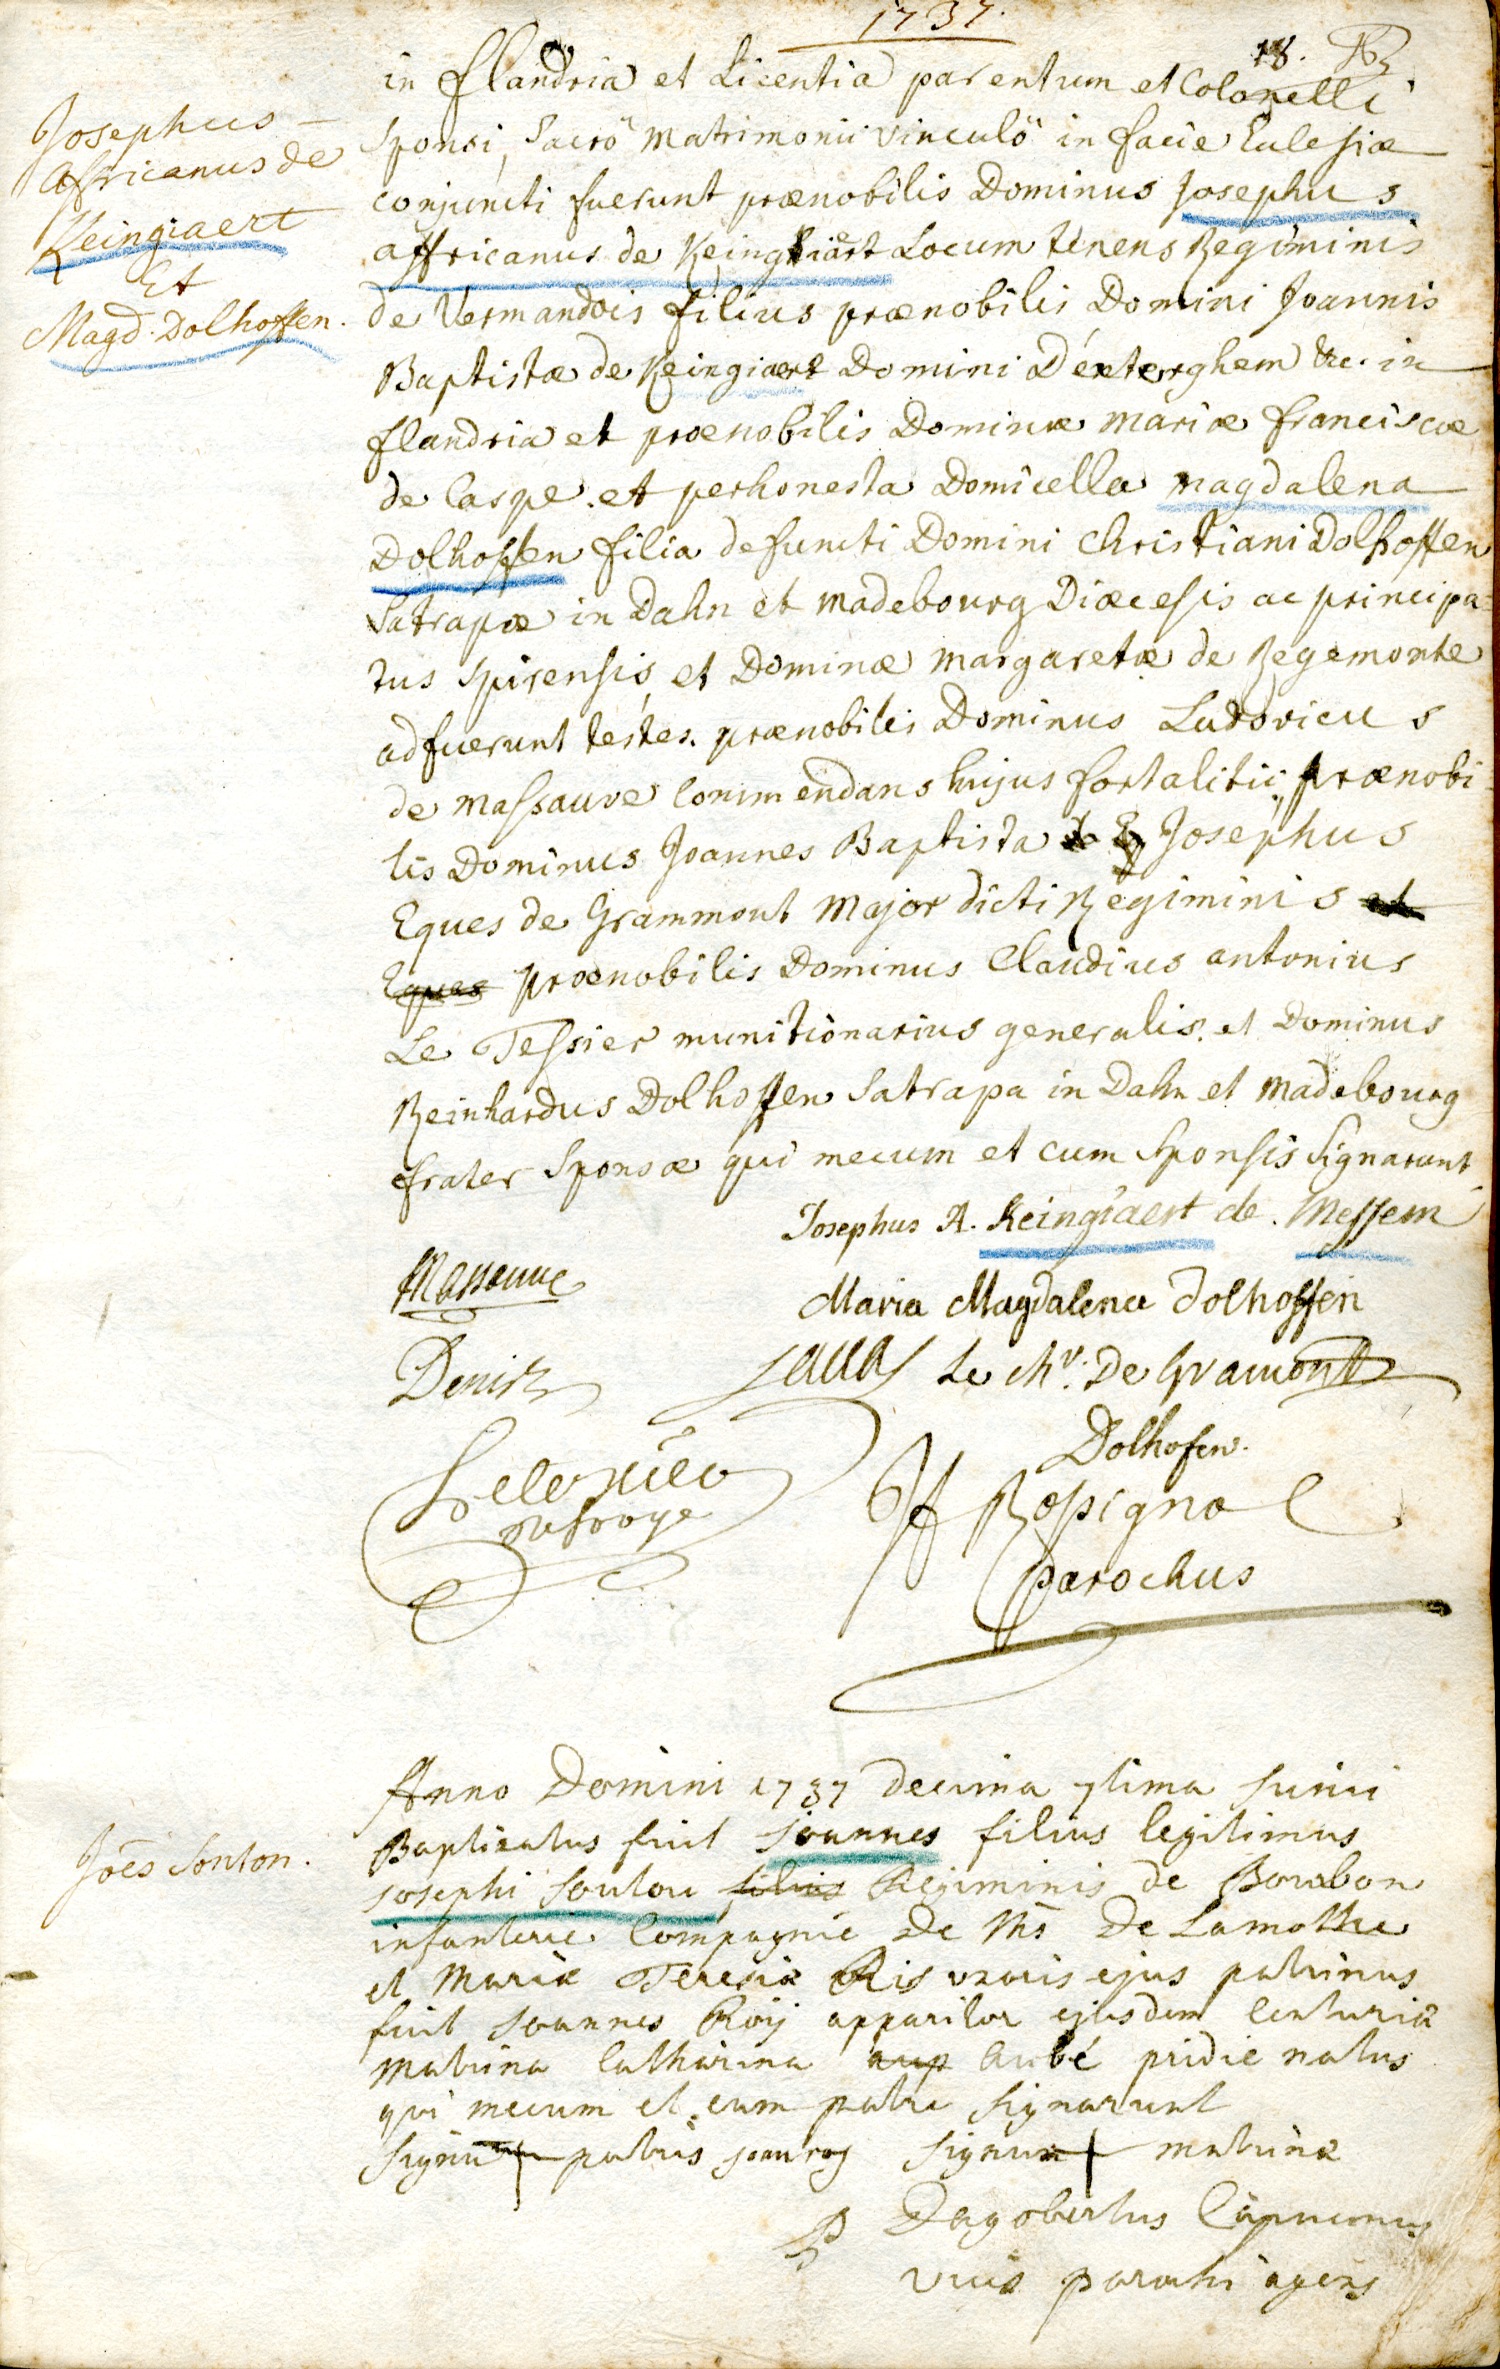 1737.
18.
in flandria et Licentia parentum et Colonelli
Sponsi, Sacro Matrimonii vinculo in facie Eclesiæ
conjuncti fuerunt prænobilis Dominus Josephus
affricanus de Keingiart Locum tenens Regiminis
de Vermandois filius prænobilis Domini Joannis
Baptistæ de Keingiaert Domini D'exterghem &c. in
flandria et prænobilis Dominæ Mariæ franciscæ
de Caspe. et perhonesta Domicella Magdalena
Dolhoffen filia defuncti Domini Christiani Dolhoffen
Satrapæ in Dahn et Madebourg Diæcesis ac principa=
tus Spirensis et Dominæ Margaretæ de Regemonte
adfuerunt testes. prænobilis Dominus Ludovicus
de Massauve Commendans hujus fortalitii, prænobi
lis Dominus Joannes Baptista Josephus
Eques de Grammont Major dicti Regiminis et
Eques prænobilis Dominus Claudius antonius
Le Tessier munitionarius generalis. et Dominus
Reinhardus Dolhoffen Satrapa in Dahn et Madebourg
frater Sponsæ qui mecum et cum Sponsis Signarunt
Josephus –
Africanus de
Keingiaert
Et
Magd. Dolhoffen.
Josephus A. Keingiaert de. Messem
Massauve
Maria Magdalena Dolhoffen
Denis
Le Chv. De Gramont
Dolhofen.
Rossignol
Parochus
Anno Domini 1737 decima 7tima Junii
Baptizatus fuit Joannes filius legitimus
Josephi Sonton filius Regiminis de Bourbon
infanterie Compagnie De Mr De Lamothe
et Mariæ Teresiæ Ris uxoris ejus patrinus
fuit Joannes Roij apparitor ejusdem Centuriæ
Matrina Catharina aup Aubé pridie natus
qui mecum et cum patre Signarunt
Signum patris Signum matrinæ
Joes Sonton.
P Dagobertus Capucinus
vices parochi agens